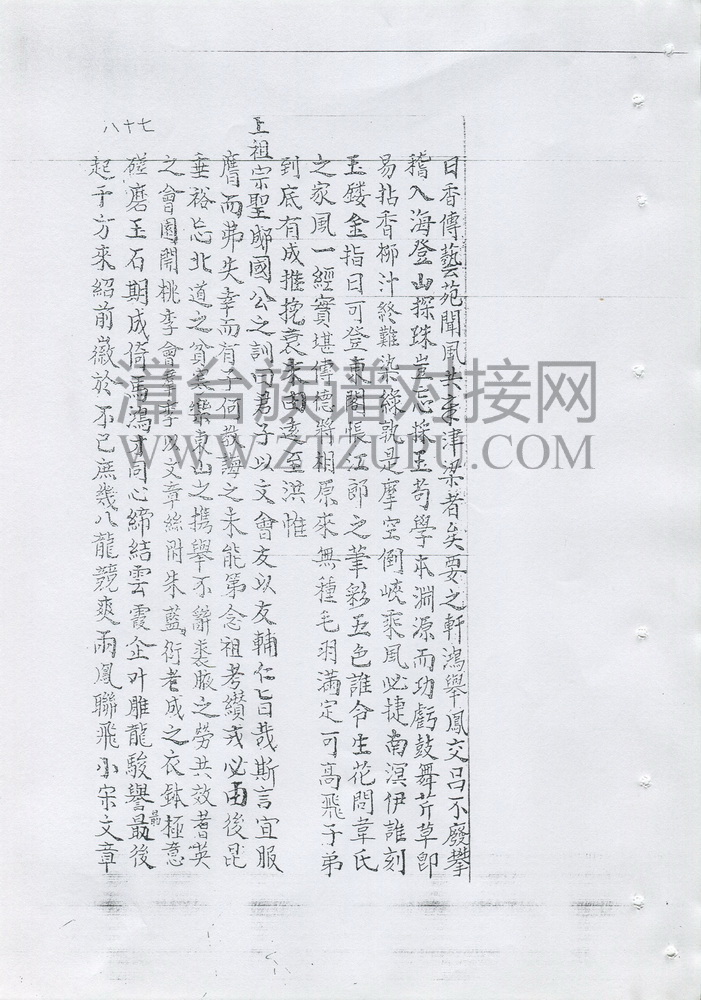 日香傳藝苑聞風共主津梁者矣要之軒鴻舉鳳交呂不廢攀
稽入海登山探珠豈忘採玉苟學本淵源而功虧鼓舞芹草即
易拈香柳汁終難染綠孰是摩空倒峽乘風必捷南溟伊誰刻
玉鏤金指日可登東閣張江郎之筆彩五色誰令生花問韋氏
之家風一經實堪傳德將相原來無種毛羽滿定可高飛子弟
到底有成推挽衰朱由遠至洪惟
祖宗聖鄘國公之訓曰君子以文會友以友輔仁旨哉斯言宜服
膺而弗失幸而有子何敢誨之未能第念祖考纘戎必由後昆
垂裕忘北道之貧裹樂東山之攜舉不辭裘腋之勞共效耆英
之會園開桃李會羣季以文章絲附朱藍衍老成之衣鉢極意
磋磨玉石期成倚馬鴻才同心締結雲霞企叶雕龍駿譽最後
最
起于方來紹前徽於不已庶幾八龍競爽兩鳳聯飛小宋文章
八十七
漳台族谱对接网
WWW.ZTZUPU.COM